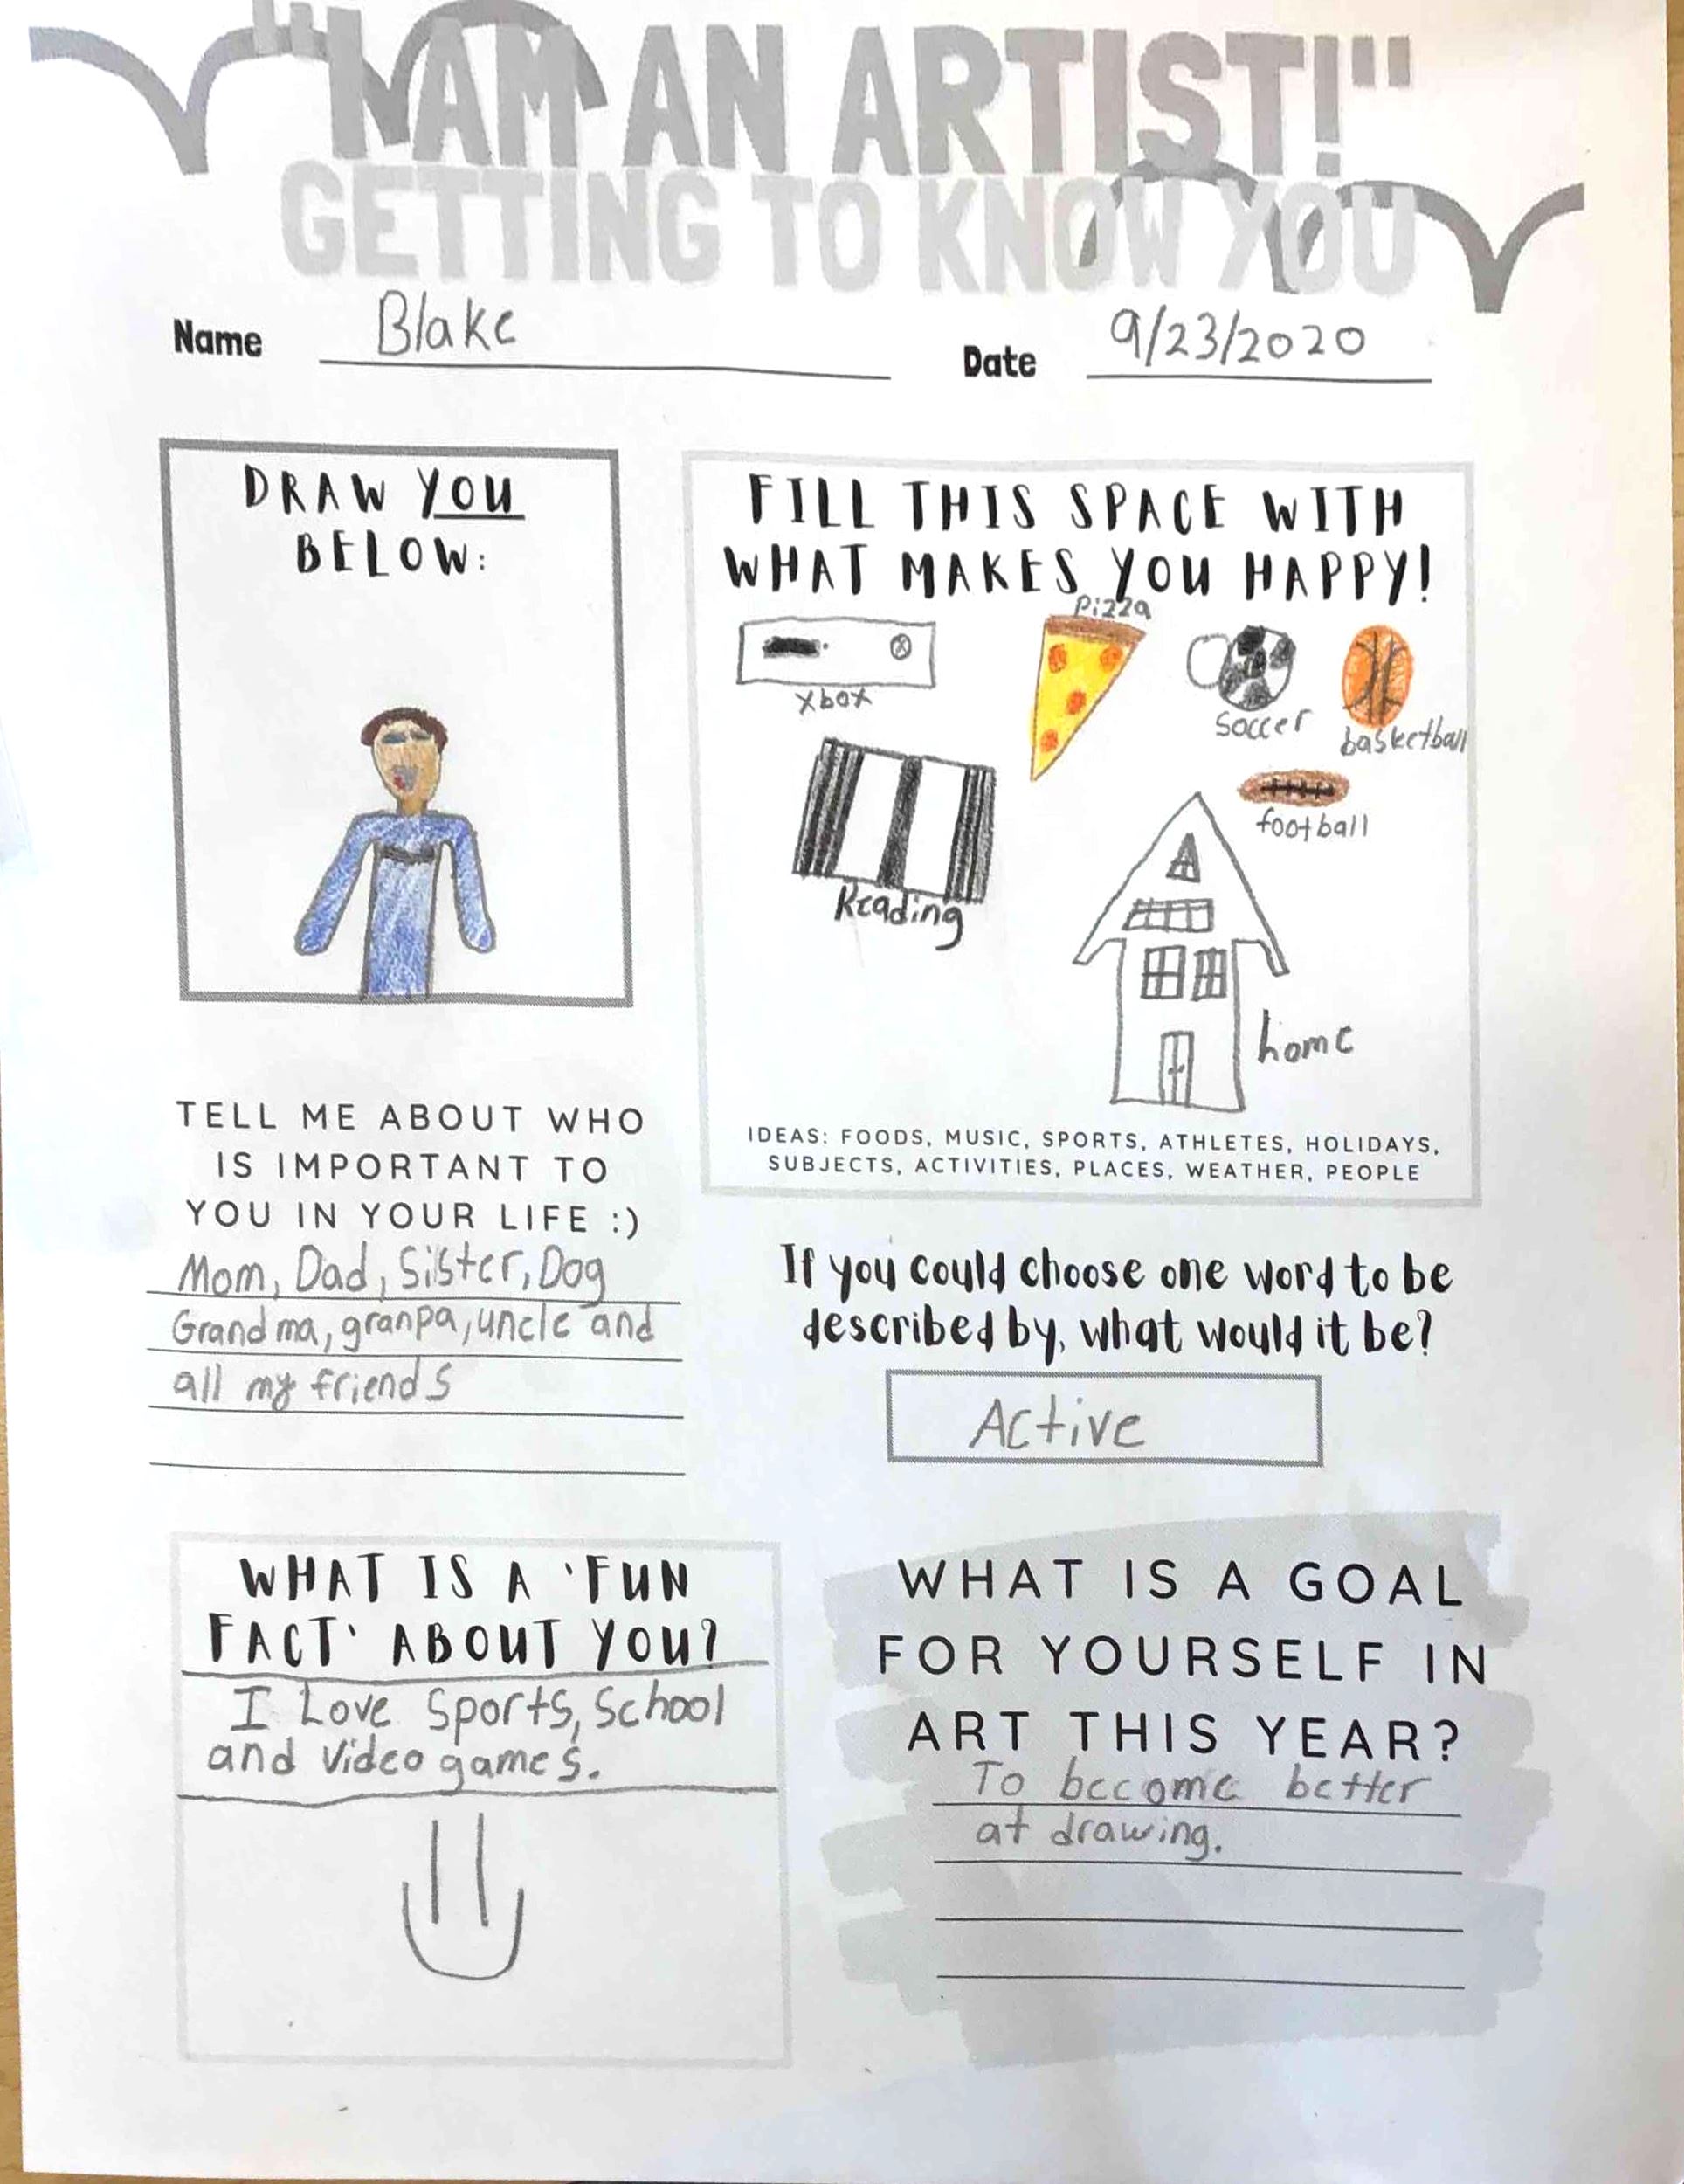 "I AM AN ARTIST!"
GETTING TO KNOW YOU
Name Blake
Date 9/23/2020
DRAW YOU
BELOW:
FILL THIS SPACE WITH
WHAT MAKES YOU HAPPY!
Pizza
xbox
soccer
basketball
Reading
football
home
IDEAS: FOODS, MUSIC, SPORTS, ATHLETES, HOLIDAYS,
SUBJECTS, ACTIVITIES, PLACES, WEATHER, PEOPLE
TELL ME ABOUT WHO
IS IMPORTANT TO
YOU IN YOUR LIFE :)
Mom, Dad, Sister, Dog
Grandma, granpa, uncle and
all my friends
If you could choose one word to be
described by, what would it be?
Active
WHAT IS A 'FUN
FACT' ABOUT YOU?
I Love Sports, School
and Video games.
WHAT IS A GOAL
FOR YOURSELF IN
ART THIS YEAR?
To become better
at drawing.